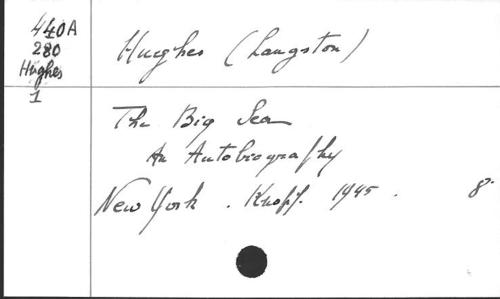 440A
280
Hughes
1
Hughes (Langston)
The Big Sea
An Autobiography
New York . Knopf. 1945 . 8°